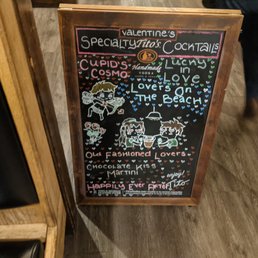 Valentine's
Specialty Tito's Cocktails
Cupid's Cosmo
Handmade
Vodka
Lucky in Love
Lovers On The Beach
Old Fashioned Lovers
Chocolate Kiss Martini
enjoy!
Tito
Happily Ever After